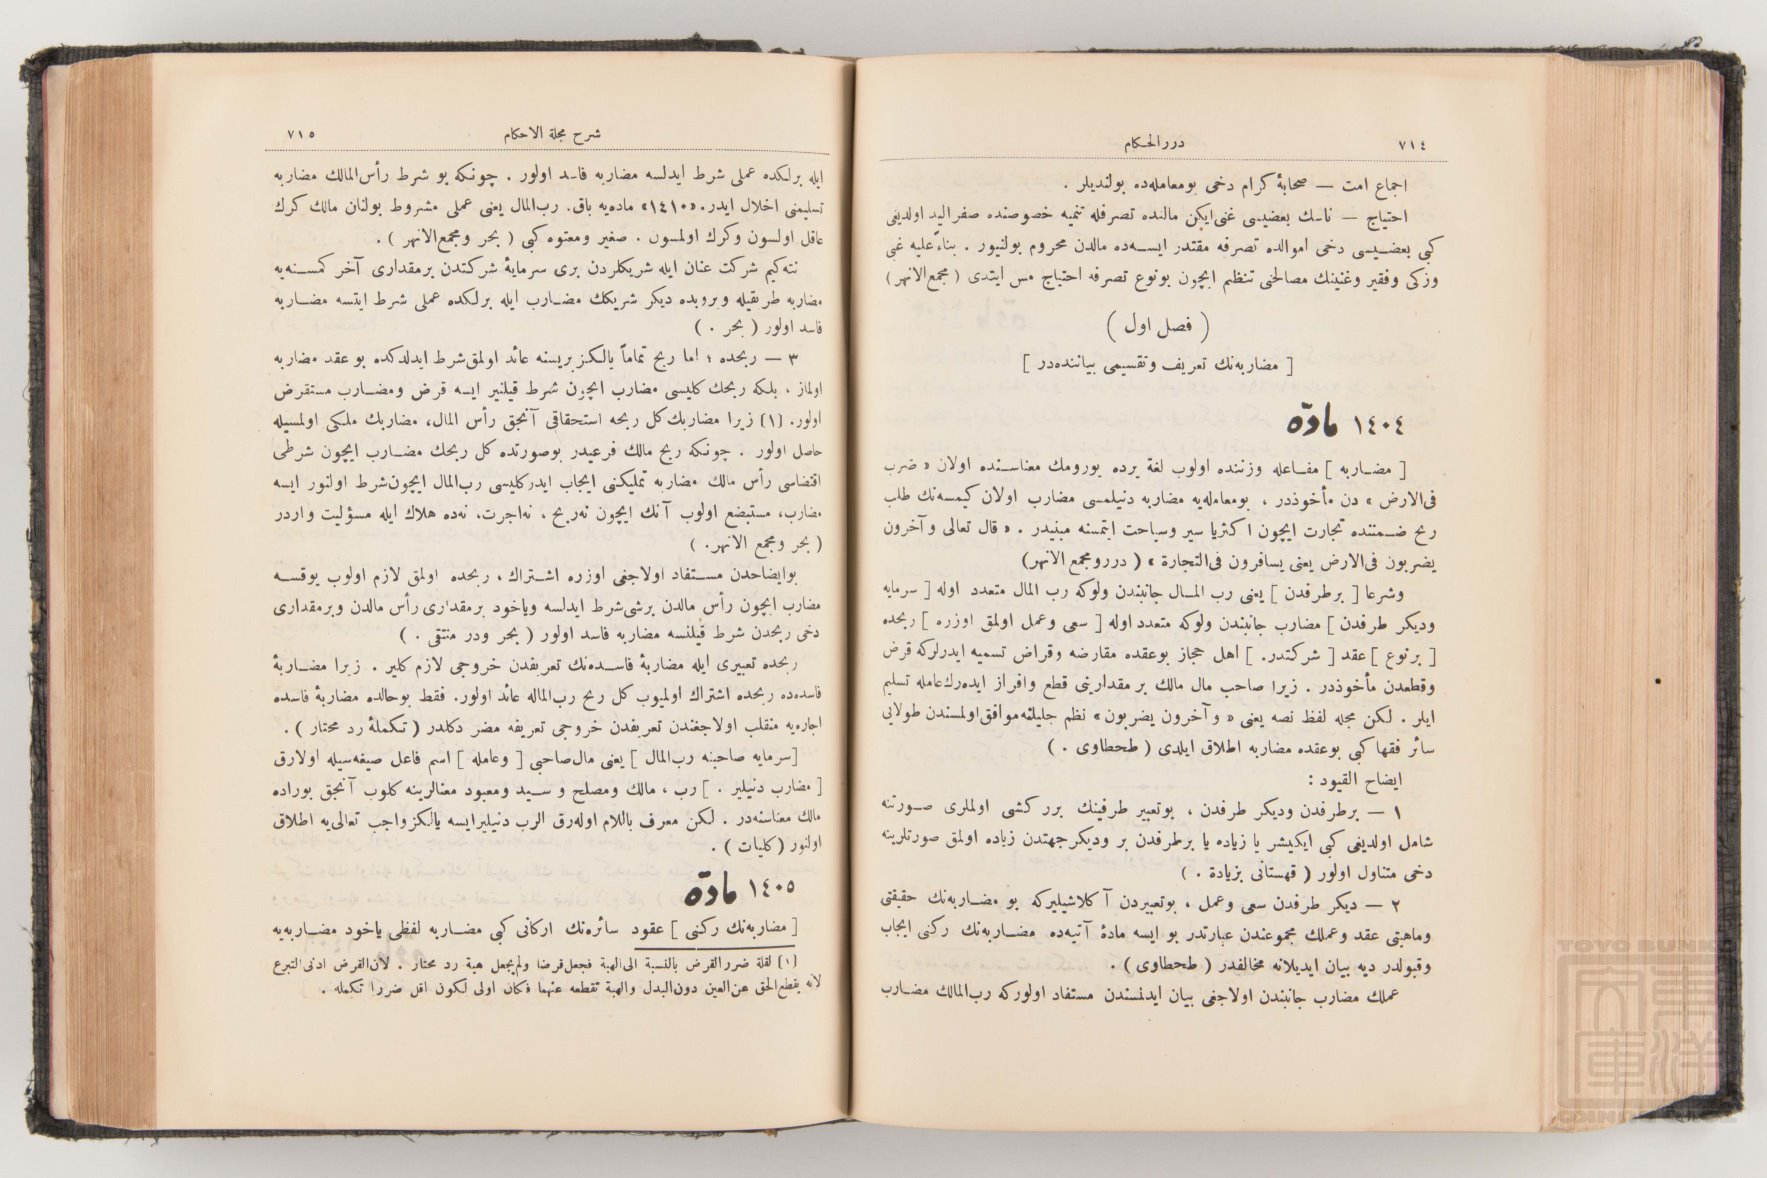 ٧١٤
دررالحكام
اجماع امت — صحابهٔ كرام دخى بومعامله‌ده بولنديلر .
احتياج — ناسك بعضيسى غنى‌ايكن مالنده تصرفله تنميه خصوصنده صفراليد اولديغى
كبى بعضيسى دخى اموالده تصرفه مقتدر ايسه‌ده مالدن محروم بولنيور . بناءً عليه غبى
وزكى وفقير وغنينك مصالحنى تنظيم ايچون بونوع تصرفه احتياج مس ايتدى ( مجمع‌الانهر )
( فصل اول )
[ مضاربه‌نك تعريف وتقسيمى بياننده‌در ]
١٤٠٤ مادّه
[ مضاربه ] مفاعله وزننده اولوب لغة يرده يورومك معناسنده اولان « ضرب
فى‌الارض » دن مأخوذدر ، بومعامله‌يه مضاربه دنيلمسى مضارب اولان كيمسه‌نك طلب
ربح ضمننده تجارت ايچون اكثريا سير وسياحت ايتمسنه مبنيدر . « قال تعالى وآخرون
يضربون فى‌الارض يعنى يسافرون فى‌التجارة » ( دررومجمع الانهر)
وشرعا [ برطرفدن ] يعنى رب المال جانبندن ولوكه رب المال متعدد اوله [ سرمايه
وديكر طرفدن ] مضارب جانبندن ولوكه متعدد اوله [ سعى وعمل اولمق اوزره ] ربحده
[ برنوع ] عقد [ شركتدر. ] اهل حجاز بوعقده مقارضه وقراض تسميه ايدرلركه قرض
وقطعدن مأخوذدر . زيرا صاحب مال مالك بر مقدارينى قطع وافراز ايده‌رك‌عامله تسليم
ايلر . لكن مجله لفظ نصه يعنى « وآخرون يضربون » نظم جليلنه‌موافق‌اولمسندن طولايى
سائر فقها كبى بوعقده مضاربه اطلاق ايلدى ( طحطاوى . )
ايضاح القيود :
١ — برطرفدن وديكر طرفدن ، بوتعبير طرفينك برر كشى اولملرى صورتنه
شامل اولديغى كبى ايكيشر يا زياده يا برطرفدن بر وديكرجهتدن زياده اولمق صورتلرينه
دخى متناول اولور ( قهستانى بزيادة . )
٢ — ديكر طرفدن سعى وعمل ، بوتعبيردن آكلاشيليركه بو مضاربه‌نك حقيقتى
وماهيتى عقد وعملك مجموعندن عبارتدر بو ايسه مادهٔ آتيه‌ده مضاربه‌نك ركنى ايجاب
وقبولدر ديه بيان ايديلانه مخالفدر ( طحطاوى ) .
عملك مضارب جانبندن اولاجغى بيان ايدلمسندن مستفاد اولوركه رب‌المالك مضارب
٧١٥
شرح مجلة الاحكام
ايله برلكده عملى شرط ايدلسه مضاربه فاسد اولور . چونكه بو شرط رأس‌المالك مضاربه
تسليمنى اخلال ايدر. «١٤١٠» ماده‌يه باق. رب‌المال يعنى عملى مشروط بولنان مالك كرك
عاقل اولسون وكرك اولمسون . صغير ومعتوه كبى ( بحر ومجمع‌الانهر ) .
نته‌كيم شركت عنان ايله شريكلردن برى سرمايهٔ شركتدن برمقدارى آخر كمسنه‌يه
مضاربه طريقيله ويروبده ديكر شريكك مضارب ايله برلكده عملى شرط ايتسه مضاربه
فاسد اولور ( بحر . )
٣ — ربحده ؛ اما ربح تماماً يالكز بريسنه عائد اولمق‌شرط ايدلدكده بو عقد مضاربه
اولماز ، بلكه ربحك كليسى مضارب ايچون شرط قيلنير ايسه قرض ومضارب مستقرض
اولور. [١] زيرا مضاربك‌كل ربحه استحقاقى آنجق رأس المال، مضاربك ملكى اولمسيله
حاصل اولور . چونكه ربح مالك فرعيدر بوصورتده كل ربحك مضارب ايچون شرطى
اقتضاسى رأس مالك مضاربه تمليكنى ايجاب ايدركليسى رب‌المال ايچون‌شرط اولنور ايسه
مضارب، مستبضع اولوب آنك ايچون نه‌ربح ، نه‌اجرت، نه‌ده هلاك ايله مسؤليت واردر
( بحر ومجمع الانهر. )
بوايضاحدن مستفاد اولاجغى اوزره اشتراك ، ربحده اولمق لازم اولوب يوقسه
مضارب ايچون رأس مالدن برشى‌شرط ايدلسه وياخود برمقدارى رأس مالدن وبرمقدارى
دخى ربحدن شرط قيلنسه مضاربه فاسد اولور ( بحر ودر منتقى . )
ربحده تعبيرى ايله مضاربهٔ فاسده‌نك تعريفدن خروجى لازم كلير . زيرا مضاربهٔ
فاسده‌ده ربحده اشتراك اولميوب كل ربح رب‌الماله عائد اولور. فقط بوحالده مضاربهٔ فاسده
اجاره‌يه منقلب اولاجغندن تعريفدن خروجى تعريفه مضر دكلدر ( تكملهٔ رد محتار ) .
[سرمايه صاحبنه رب‌المال ] يعنى مال‌صاحبى [ وعامله ] اسم فاعل صيغه‌سيله اولارق
[ مضارب دنيلير . ] رب ، مالك ومصلح و سيد ومعبود معنالرينه كلوب آنجق بوراده
مالك معناسنه‌در . لكن معرف باللام اوله‌رق الرب دنيليرايسه يالكزواجب تعالى‌يه اطلاق
اولنور (كليات ) .
١٤٠٥ مادّه
[ مضاربه‌نك ركنى ] عقود سائره‌نك اركانى كبى مضاربه لفظى ياخود مضاربه‌يه
[١] لقلة ضررالقرض بالنسبة الى‌الهبة فجعل‌قرضا ولم‌يجعل هبة رد محتار . لان‌القرض ادنى‌التبرع
لانه يقطع‌الحق عن‌العين دون‌البدل والهبة تقطعه عنهما فكان اولى لكون اقل ضررا تكمله .
TOYO BUNKO
東洋文庫